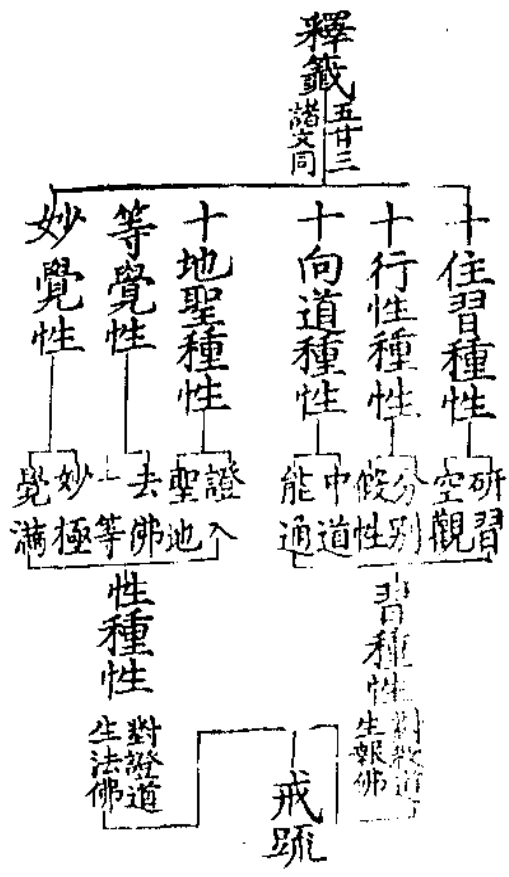 釋籤
五廿三
諸文同
十住習種性
十行性種性
十向道種性
十地聖種性
等覺性
妙覺性
研習
空觀
分別
假性
中道
能通
證入
聖地
去佛
一等
妙極
覺滿
習種性
對教道
生報佛
性種性
對證道
生法佛
戒疏